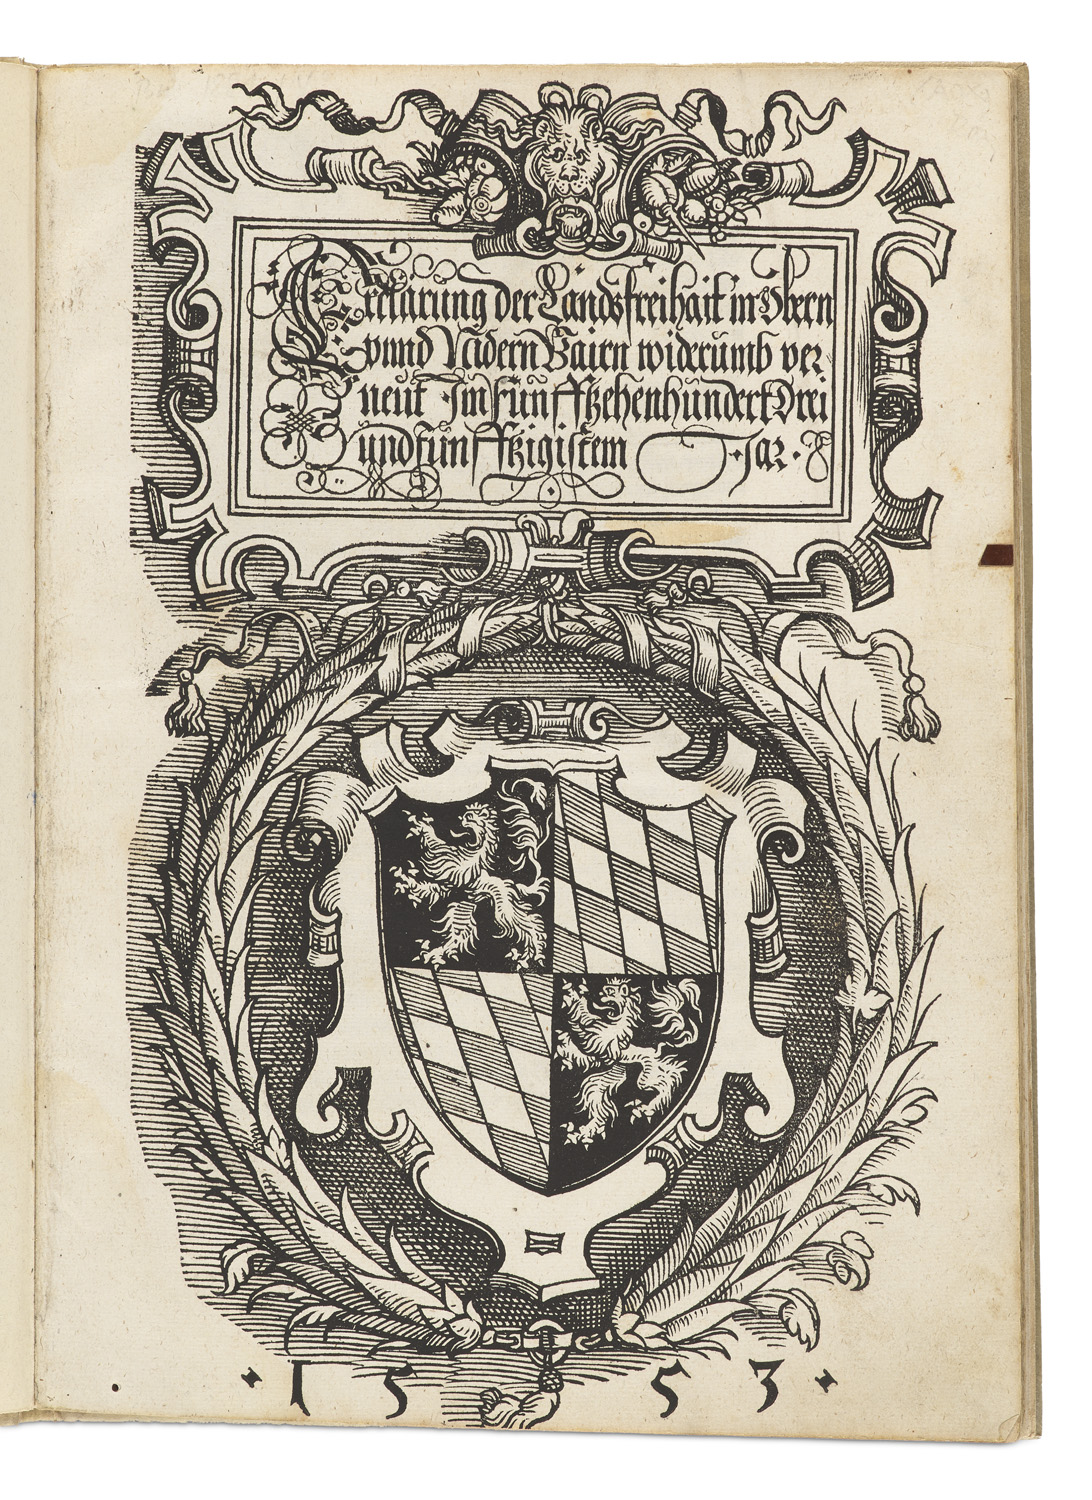 Erclärung der Landsfreihait in Obern
vnnd Nidern Bairn widerumb ver
neüt Im Fünfftzehenhündert Drei
ündfünfftzigistem Jar.
· 1 5 5 3 ·